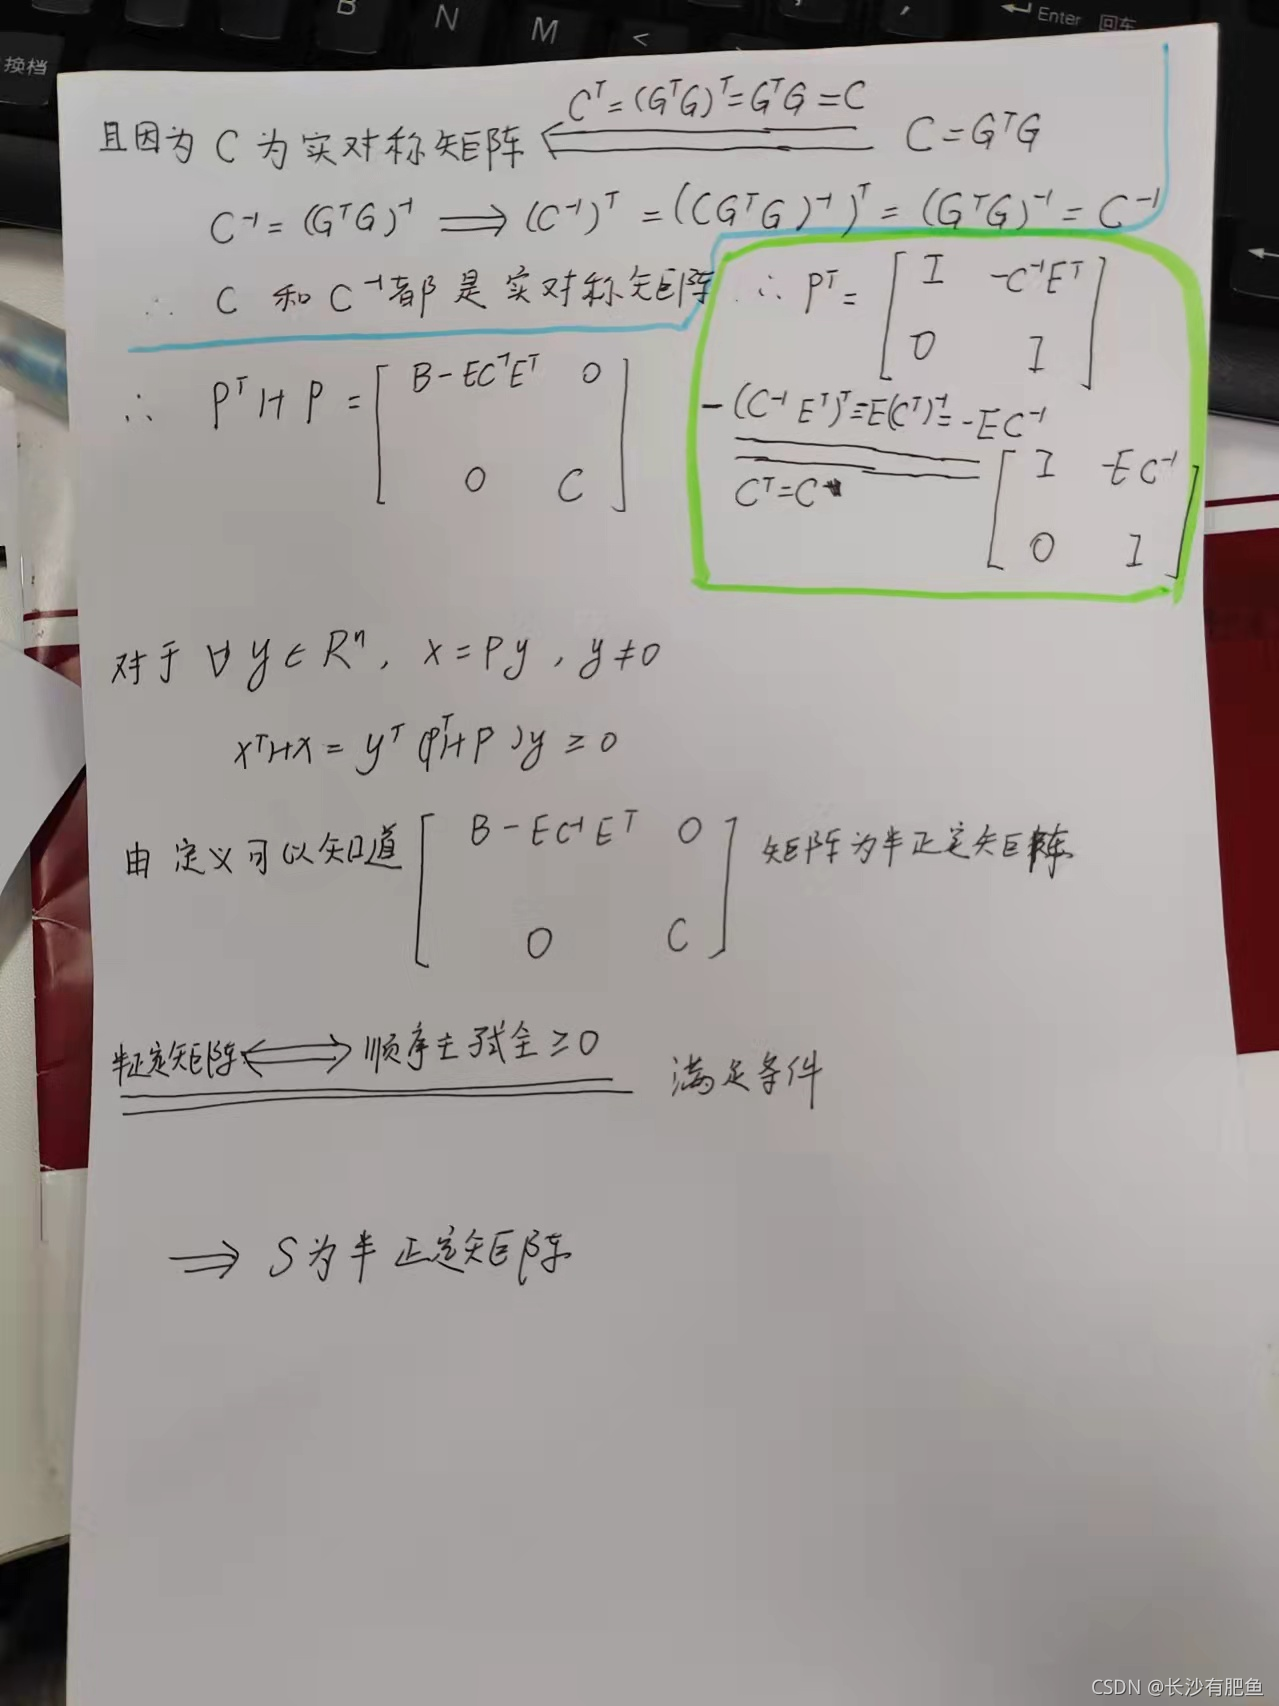 B N M <
换档
Enter 回车
Cᵀ=(GᵀG)ᵀ=GᵀG=C
且因为 C 为实对称矩阵 ⟸ C=GᵀG
C⁻¹=(GᵀG)⁻¹ ⟹ (C⁻¹)ᵀ=((GᵀG)⁻¹)ᵀ=(GᵀG)⁻¹=C⁻¹
∴ C 和 C⁻¹都是实对称矩阵
∴ Pᵀ= [ I -C⁻¹Eᵀ
0 I ]
-(C⁻¹Eᵀ)ᵀ=E(Cᵀ)⁻¹=-EC⁻¹
Cᵀ=C
[ I -EC⁻¹
0 I ]
∴ PᵀHP = [ B-EC⁻¹Eᵀ 0
0 C ]
对于 ∀ y∈Rⁿ, x=Py, y≠0
xᵀHx=yᵀ(PᵀHP)y≥0
由定义可以知道 [ B-EC⁻¹Eᵀ 0
0 C ] 矩阵为半正定矩阵
半正定矩阵⟺顺序主子式全≥0 满足条件
⟹ S为半正定矩阵
CSDN @长沙有肥鱼